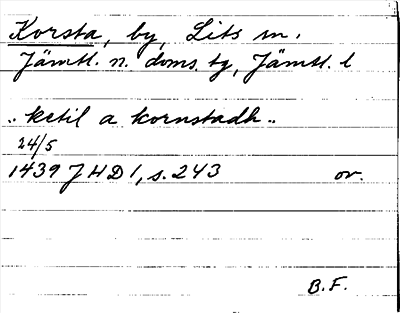 Korsta, by, Lits sn.
Jämtl. n. doms. tg, Jämtl. l
"ketil a kornstadh"
24/5
1439 JHD 1, s. 243 or.
B.F.